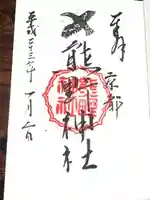 奉拝
京都
熊野神社
平成二十三年一月